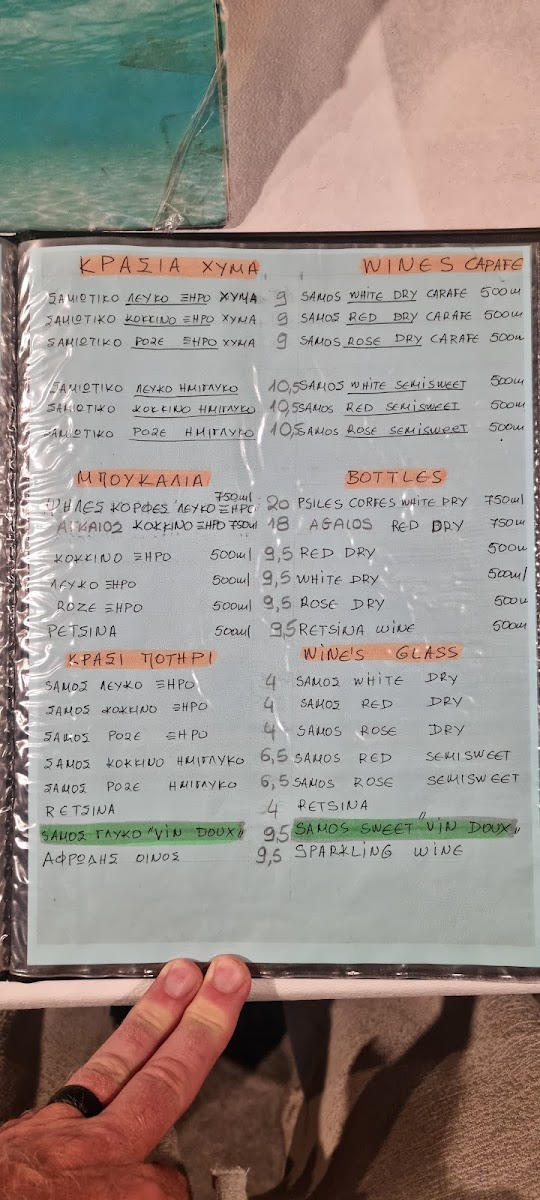 ΚΡΑΣΙΑ ΧΥΜΑ WINES CAPAFE
ΣΑΜΙΩΤΙΚΟ ΛΕΥΚΟ ΞΗΡΟ ΧΥΜΑ 9 SAMOS WHITE DRY CARAFE 500ml
ΣΑΜΙΩΤΙΚΟ ΚΟΚΚΙΝΟ ΞΗΡΟ ΧΥΜΑ 9 SAMOS RED DRY CARAFE 500ml
ΣΑΜΙΩΤΙΚΟ ΡΟΖΕ ΞΗΡΟ ΧΥΜΑ 9 SAMOS ROSE DRY CARAFE 500ml
ΣΑΜΙΩΤΙΚΟ ΛΕΥΚΟ ΗΜΙΓΛΥΚΟ 10,5 SAMOS WHITE SEMISWEET 500ml
ΣΑΜΙΩΤΙΚΟ ΚΟΚΚΙΝΟ ΗΜΙΓΛΥΚΟ 10,5 SAMOS RED SEMISWEET 500ml
ΣΑΜΙΩΤΙΚΟ ΡΟΖΕ ΗΜΙΓΛΥΚΟ 10,5 SAMOS ROSE SEMISWEET 500ml
ΜΠΟΥΚΑΛΙΑ BOTTLES
750ml
ΨΗΛΕΣ ΚΟΡΦΕΣ ΛΕΥΚΟ ΞΗΡΟ 20 PSILES CORFES WHITE DRY 750ml
ΑΓΚΑΙΟΣ ΚΟΚΚΙΝΟ ΞΗΡΟ 750ml 18 AGAIOS RED DRY 750ml
ΚΟΚΚΙΝΟ ΞΗΡΟ 500ml 9,5 RED DRY 500ml
ΛΕΥΚΟ ΞΗΡΟ 500ml 9,5 WHITE DRY 500ml
ROZE ΞΗΡΟ 500ml 9,5 ROSE DRY 500ml
ΡΕΤΣΙΝΑ 500ml 9,5 RETSINA WINE 500ml
ΚΡΑΣΙ ΠΟΤΗΡΙ WINE'S GLASS
SΑΜΟΣ ΛΕΥΚΟ ΞΗΡΟ 4 SAMOS WHITE DRY
SΑΜΟΣ ΚΟΚΚΙΝΟ ΞΗΡΟ 4 SAMOS RED DRY
SΑΜΟΣ ΡΟΖΕ ΞΗΡΟ 4 SAMOS ROSE DRY
SΑΜΟΣ ΚΟΚΚΙΝΟ ΗΜΙΓΛΥΚΟ 6,5 SAMOS RED SEMISWEET
SΑΜΟΣ ΡΟΖΕ ΗΜΙΓΛΥΚΟ 6,5 SAMOS ROSE SEMISWEET
RETSINA 4 PETSINA
SAMOS ΓΛΥΚΟ "VIN DOUX" 9,5 SAMOS SWEET "VIN DOUX"
ΑΦΡΩΔΗΣ ΟΙΝΟΣ 9,5 SPARKLING WINE